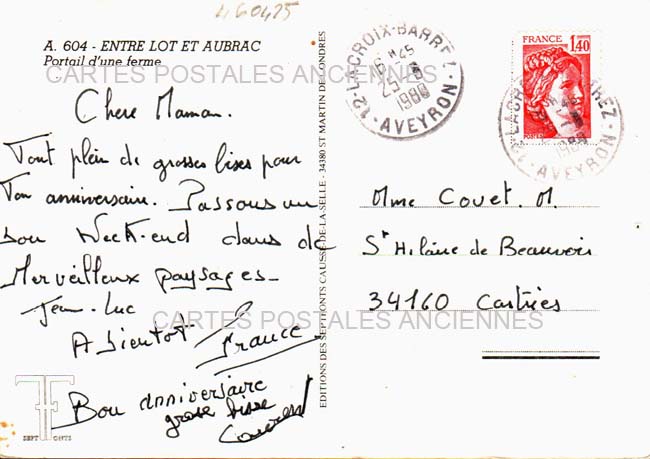 460425
A. 604 - ENTRE LOT ET AUBRAC
Portail d'une ferme
CARTES POSTALES ANCIENNES
Chere Maman.
Tout plein de grosses bises pour
Ton anniversaire. Passons un
bon Week-end dans de
Merveilleux paysages_
Jean-Luc
A bientot
France
Bon anniversaire
grosse bisse
Laurent
SEPT FONTS
EDITIONS DES SEPT FONTS CAUSSE-DE-LA-SELLE - 34380 ST MARTIN DE LONDRES
12-LACROIX-BARREZ
1980
AVEYRON
FRANCE
1,40
12-LACROIX-BARREZ
1980
AVEYRON
Mme Couet. M.
St Hilaire de Beauvoir
34160 Castries
CARTES POSTALES ANCIENNES